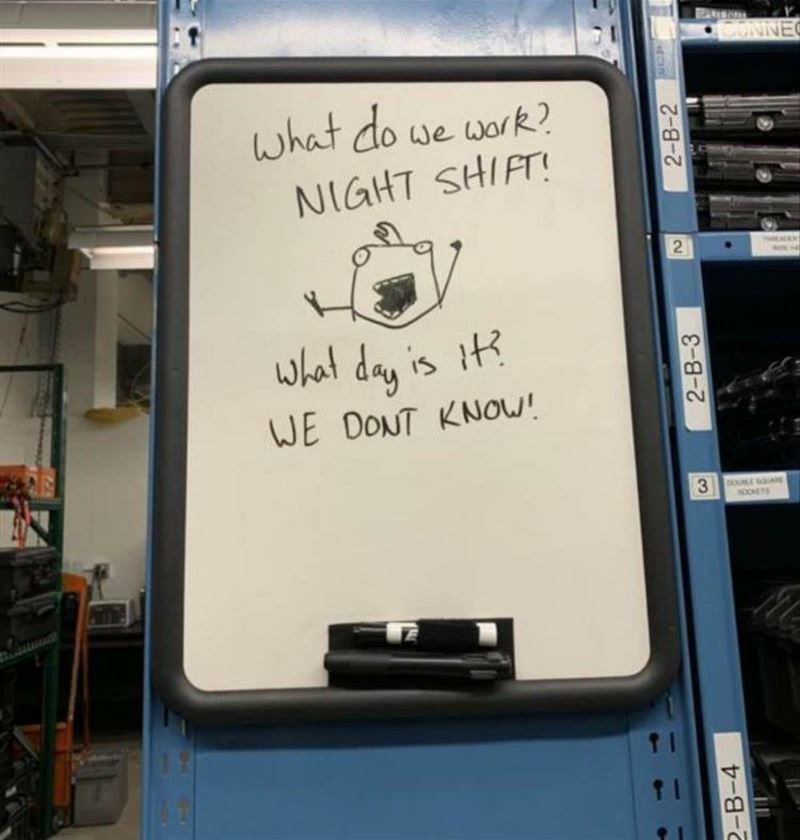 What do we work?
NIGHT SHIFT!
What day is it?
WE DONT KNOW!
2-B-2
2
2-B-3
3
DOUBLE SQUARE
SOCKETS
-B-4